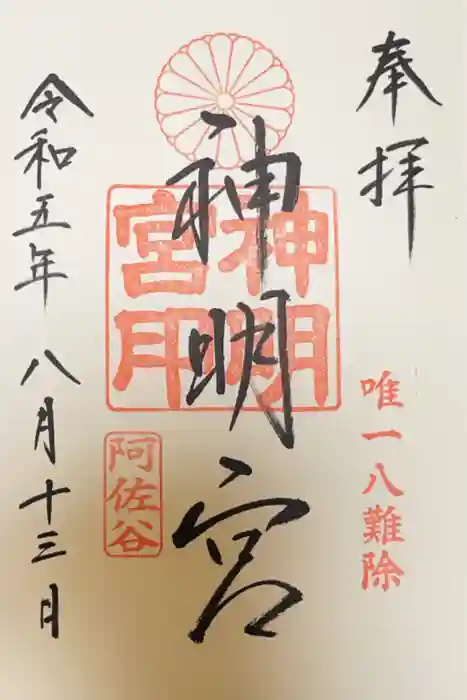 奉拝
唯一八難除
神明宮
神明宮印
阿佐谷
令和五年八月十三日